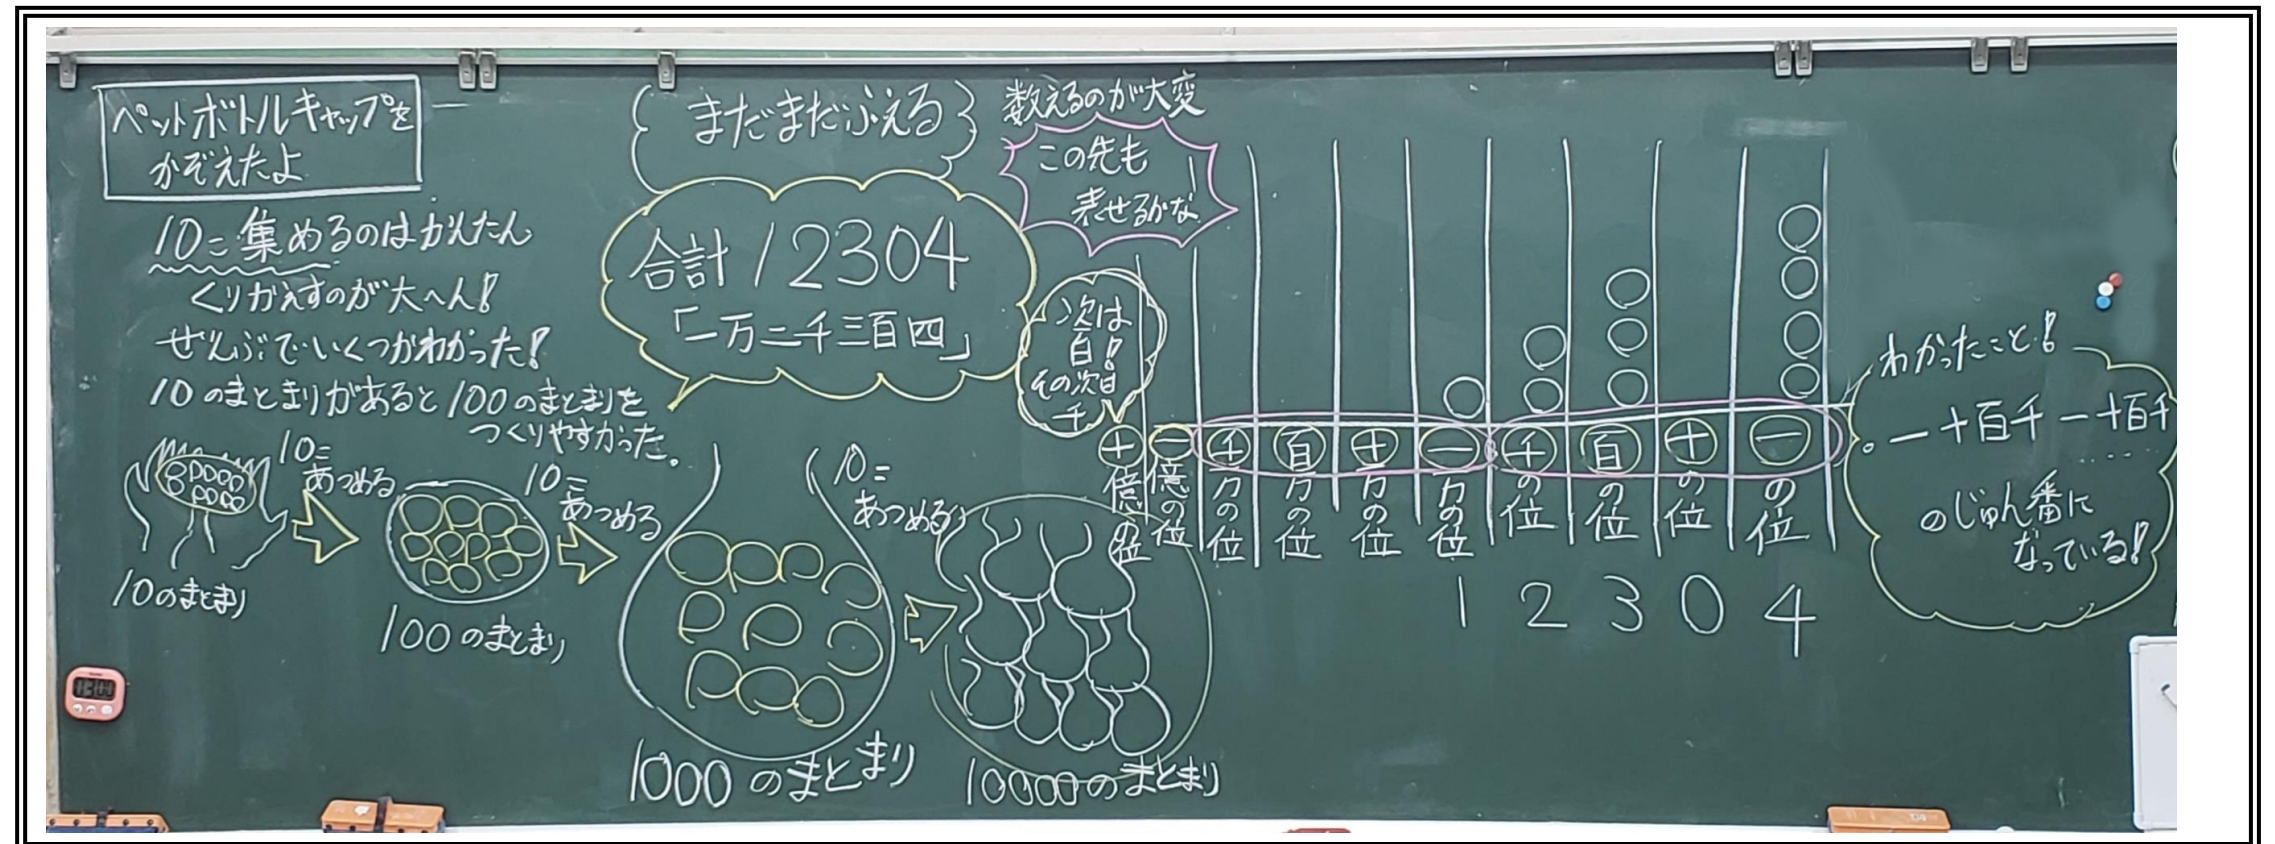 ペットボトルキャップを
かぞえたよ
10こ集めるのはかんたん
くりかえすのが大へん!
ぜんぶでいくつかわかった!
10のまとまりがあると100のまとまりを
つくりやすかった。
10こ
あつめる
10のまとまり
10こ
あつめる
100のまとまり
10こ
あつめる
1000のまとまり
10000のまとまり
まだまだふえる
合計12304
「一万二千三百四」
数えるのが大変
この先も
表せるかな
次は
百!
その次
千
十億の位
一億の位
千万の位
百万の位
十万の位
一万の位
千の位
百の位
十の位
一の位
1 2 3 0 4
わかったこと!
。一十百千一十百千
.....
のじゅん番に
なっている!